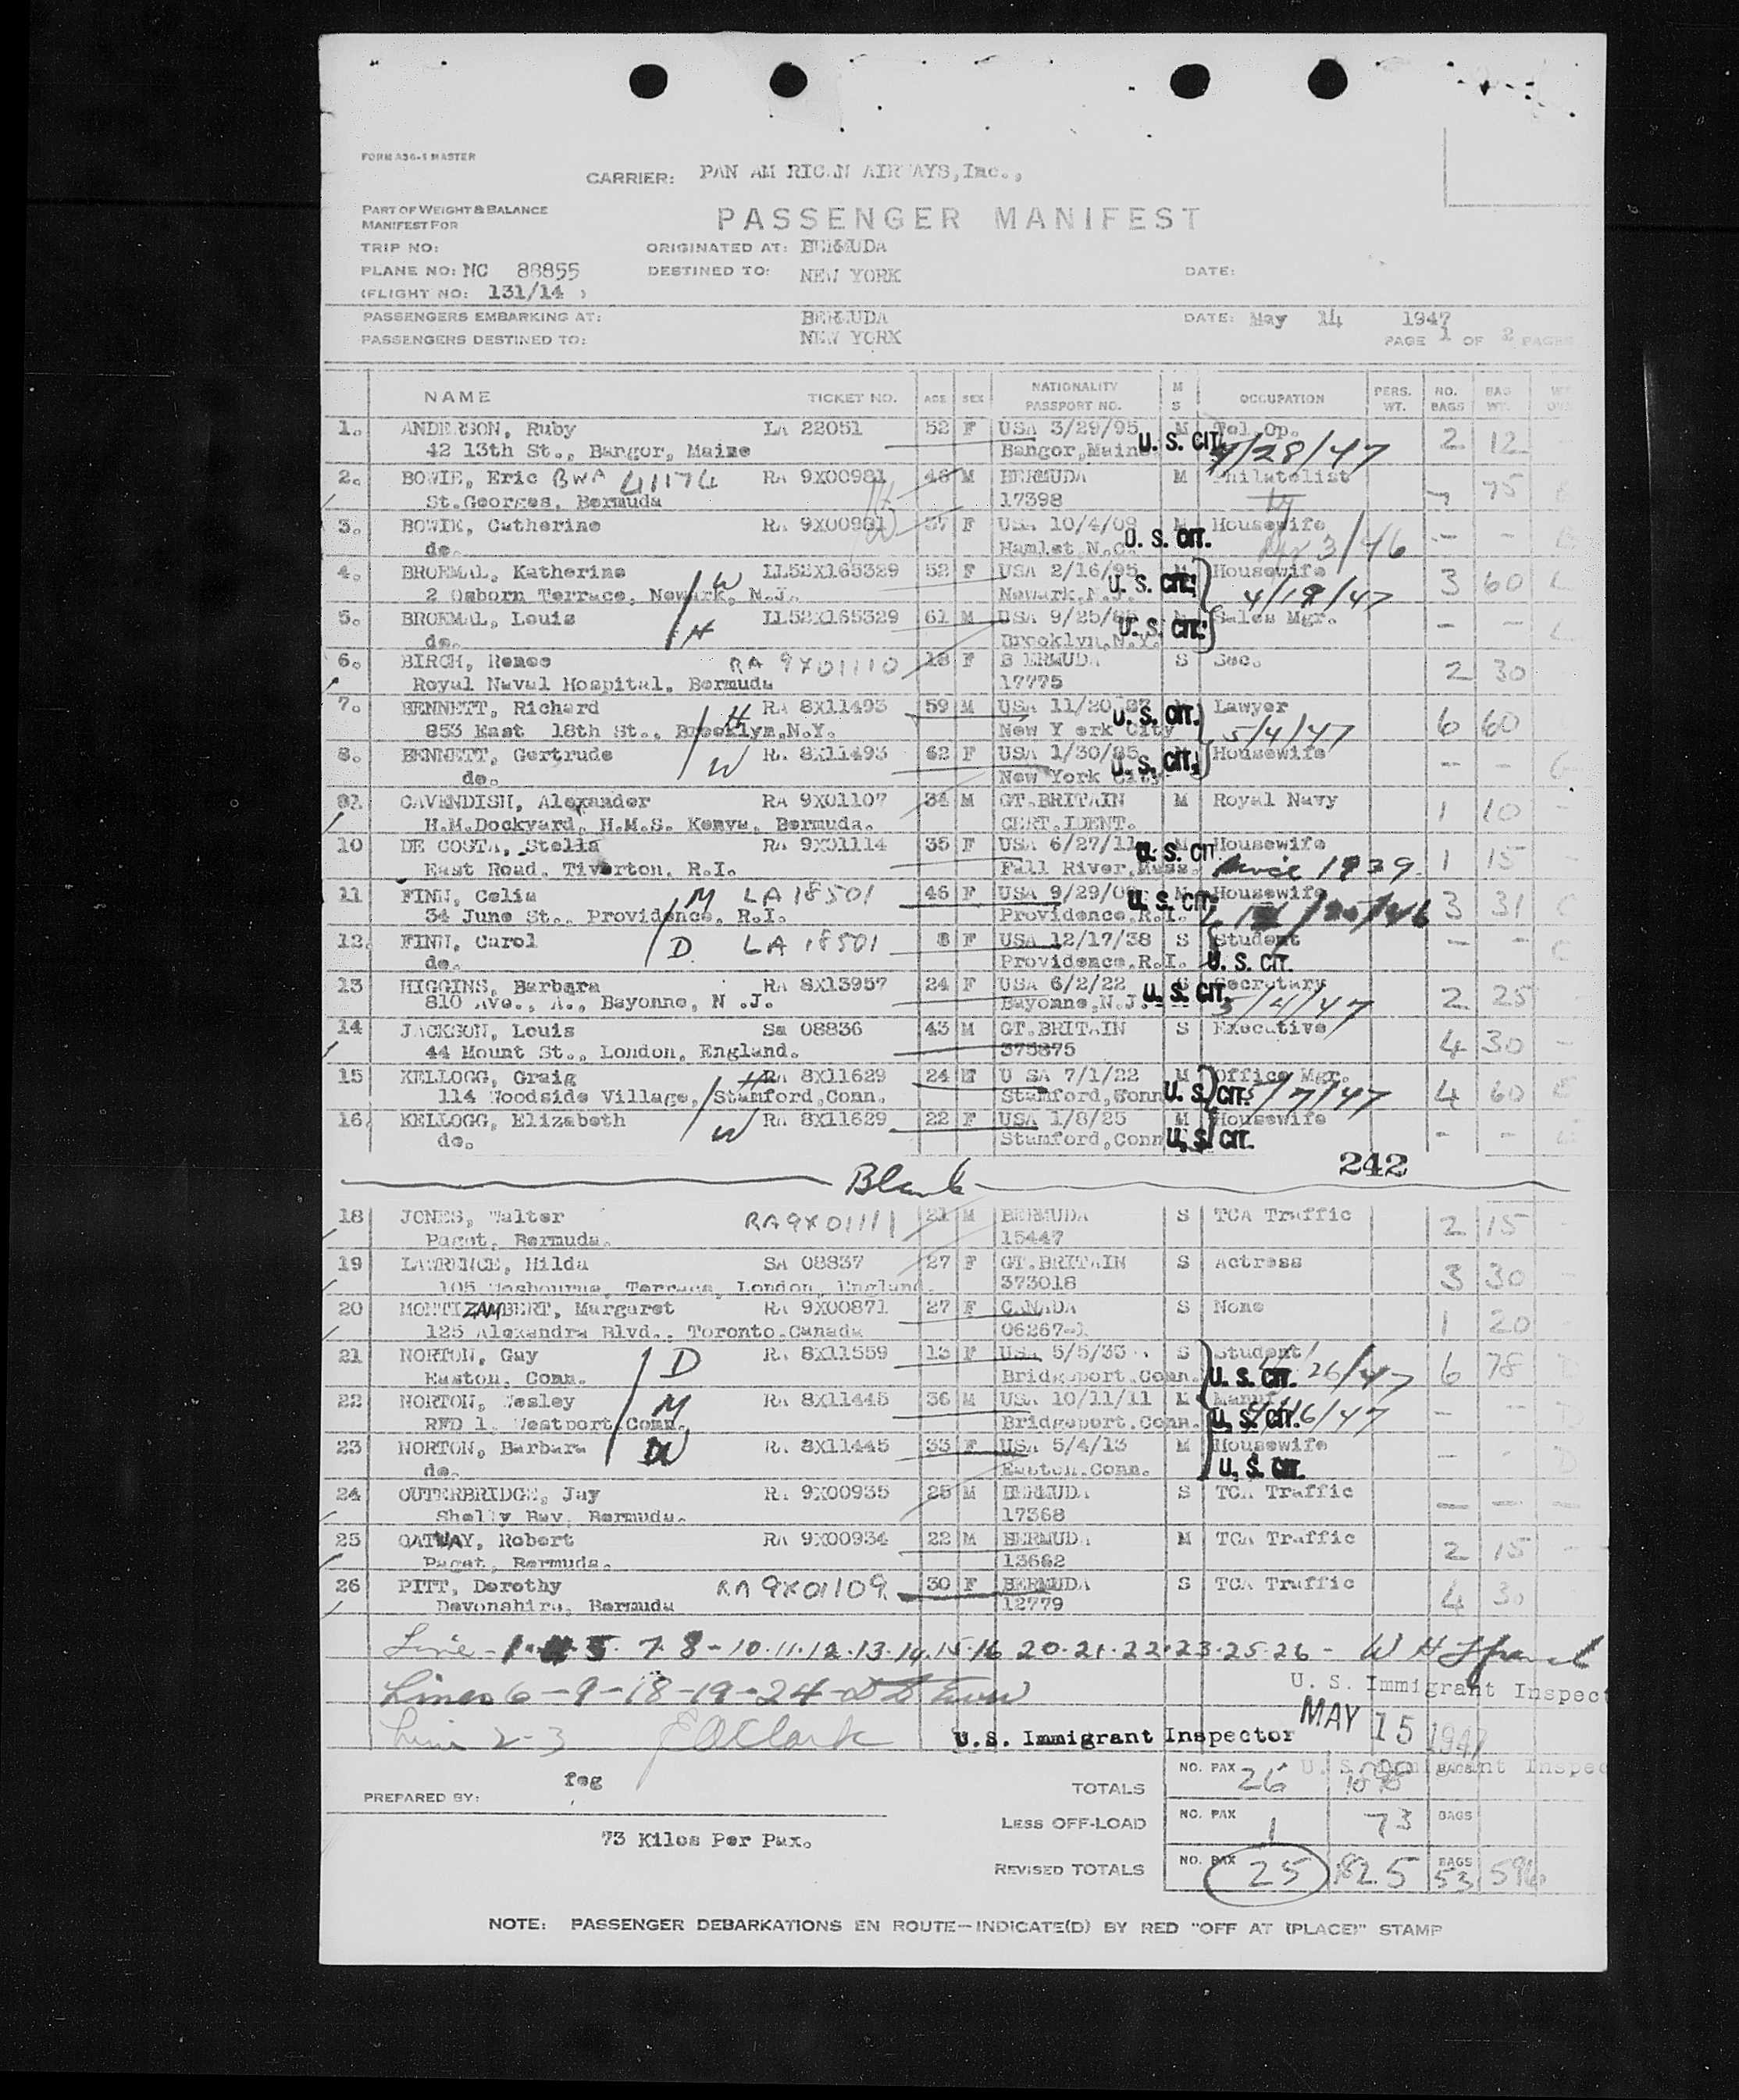 FORM A36-1 MASTER
CARRIER: PAN AM RICAN AIRWAYS,Inc.,
PART OF WEIGHT & BALANCE
MANIFEST FOR
PASSENGER MANIFEST
TRIP NO: ORIGINATED AT: BERMUDA
PLANE NO: NC 88855 DESTINED TO: NEW YORK DATE:
(FLIGHT NO: 131/14 )
PASSENGERS EMBARKING AT: BERMUDA DATE: May 14 1947
PASSENGERS DESTINED TO: NEW YORK PAGE 1 OF 2 PAGES
NAME TICKET NO. AGE SEX NATIONALITY PASSPORT NO. M S OCCUPATION PERS. WT. NO. BAGS BAG WT.
1. ANDERSON, Ruby LA 22051 52 F USA 3/29/95 M Tel.Op. 2 12
42 13th St., Bangor, Maine Bangor,Maine U. S. CIT. 4/28/47
2. BOWIE, Eric BWA 41174 RA 9X00981 46 M BERMUDA M Philatelist 75
St.Georges, Bermuda 17398
3. BOWIE, Catherine RA 9X00981 37 F USA 10/4/09 M Housewife - -
do. Hamlet,N.C. U. S. CIT. 3/46
4. BROEMAL, Katherine W LL52X165329 52 F USA 2/16/95 M Housewife 3 60
2 Osborn Terrace, Newark, N.J. Newark,N.J. U. S. CIT. 4/19/47
5. BROEMAL, Louis H LL52X165329 61 M USA 9/25/85 Sales Mgr. - -
do. Brooklyn,N.Y. U. S. CIT.
6. BIRCH, Renee RA 9X01110 18 F B ERMUDA S Sec. 2 30
Royal Naval Hospital, Bermuda 17775
7. BENNETT, Richard H RA 8X11493 59 M USA 11/20/87 Lawyer 6 60
853 East 18th St., Brooklyn,N.Y. New Y ork City U. S. CIT. 5/4/47
8. BENNETT, Gertrude W RA 8X11493 62 F USA 1/30/85 M Housewife - -
do. New York City U. S. CIT.
9. CAVENDISH, Alexander RA 9X01107 34 M GT.BRITAIN M Royal Navy 1 10
H.M.Dockyard, H.M.S. Kenya, Bermuda. CERT.IDENT.
10 DE COSTA, Stella RA 9X01114 35 F USA 6/27/11 Housewife 1 15
East Road, Tiverton, R.I. Fall River,Mass. U. S. CIT. since 1939
11 FINN, Celia M LA 18501 46 F USA 9/29/00 M Housewife 3 31
34 June St., Providence, R.I. Providence,R.I. U. S. CIT.
12. FINN, Carol D LA 18501 8 F USA 12/17/38 S Student - -
do. Providence,R.I. U. S. CIT.
13 HIGGINS, Barbara RA 8X13957 24 F USA 6/2/22 S Secretary 2 25
810 Ave., A., Bayonne, N .J. Bayonne,N.J. U. S. CIT. 5/4/47
14 JACKSON, Louis Sa 08836 43 M GT.BRITAIN S Executive 4 30
44 Mount St., London, England. 375875
15 KELLOGG, Graig H RA 8X11629 24 M U SA 7/1/22 M Office Mgr. 4 60
114 Woodside Village, Stamford,Conn. Stamford,Conn U. S. CIT. 5/7/47
16. KELLOGG, Elizabeth W RA 8X11629 22 F USA 1/8/25 M Housewife - -
do. Stamford,Conn U. S. CIT.
242
Blank
18 JONES, Walter RA9X01111 21 M BERMUDA S TCA Traffic 2 15
Paget, Bermuda. 15447
19 LAWRENCE, Hilda SA 08837 27 F GT.BRITAIN S Actress 3 30
105 Terrace, London, England. 373018
20 MONTIZAMBERT, Margaret RA 9X00871 27 F CANADA S None 1 20
125 Alexandra Blvd., Toronto,Canada 06267-
21 NORTON, Gay D RA 8X11559 13 F USA 5/5/33 S Student 6 78
Easton, Conn. Bridgeport,Conn. U. S. CIT. 26/47
22 NORTON, Wesley M RA 8X11445 36 M USA 10/11/11 M Manuf. - -
RFD 1, Westport,Conn. Bridgeport,Conn. U. S. CIT. 16/47
23 NORTON, Barbara W RA 8X11445 33 F USA 5/4/13 M Housewife - -
do. Easton,Conn. U. S. CIT.
24 OUTERBRIDGE, Jay RA 9X00935 25 M BERMUDA S TCA Traffic - -
Shelly Bay, Bermuda. 17368
25 OATWAY, Robert RA 9X00934 22 M BERMUDA M TCA Traffic 2 15
Paget, Bermuda. 13662
26 PITT, Dorothy RA 9X01109 30 F BERMUDA S TCA Traffic 4 30
Devonshire, Bermuda 12779
Line - 1 5 7 8 - 10.11.12.13.14.15.16 20.21.22.23.25.26 -
U. S. Immigrant Inspect
Lines 6 - 9 - 18 - 19 - 24
MAY 15 1947
Line 2-3 Clark U.S. Immigrant Inspector
U. S. Immigrant Inspec
feg
PREPARED BY:
TOTALS NO. PAX 26 BAGS
LESS OFF-LOAD NO. PAX 1 73 BAGS
73 Kilos Per Pax.
REVISED TOTALS NO. PAX 25 1825 BAGS 53 596
NOTE: PASSENGER DEBARKATIONS EN ROUTE—INDICATE(D) BY RED "OFF AT (PLACE)" STAMP